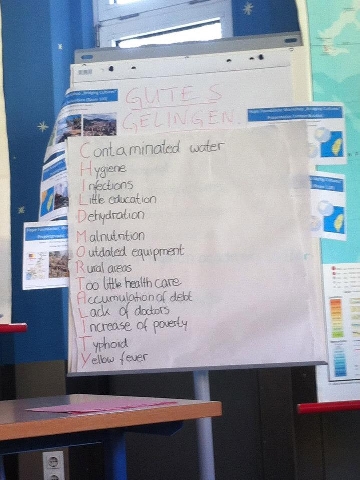 GUTES
GELINGEN.
Contaminated water
Hygiene
Infections
Little education
Dehydration
Malnutrition
Outdated equipment
Rural areas
Too little health care
Accumulation of debt
Lack of doctors
Increase of poverty
Typhoid
Yellow fever